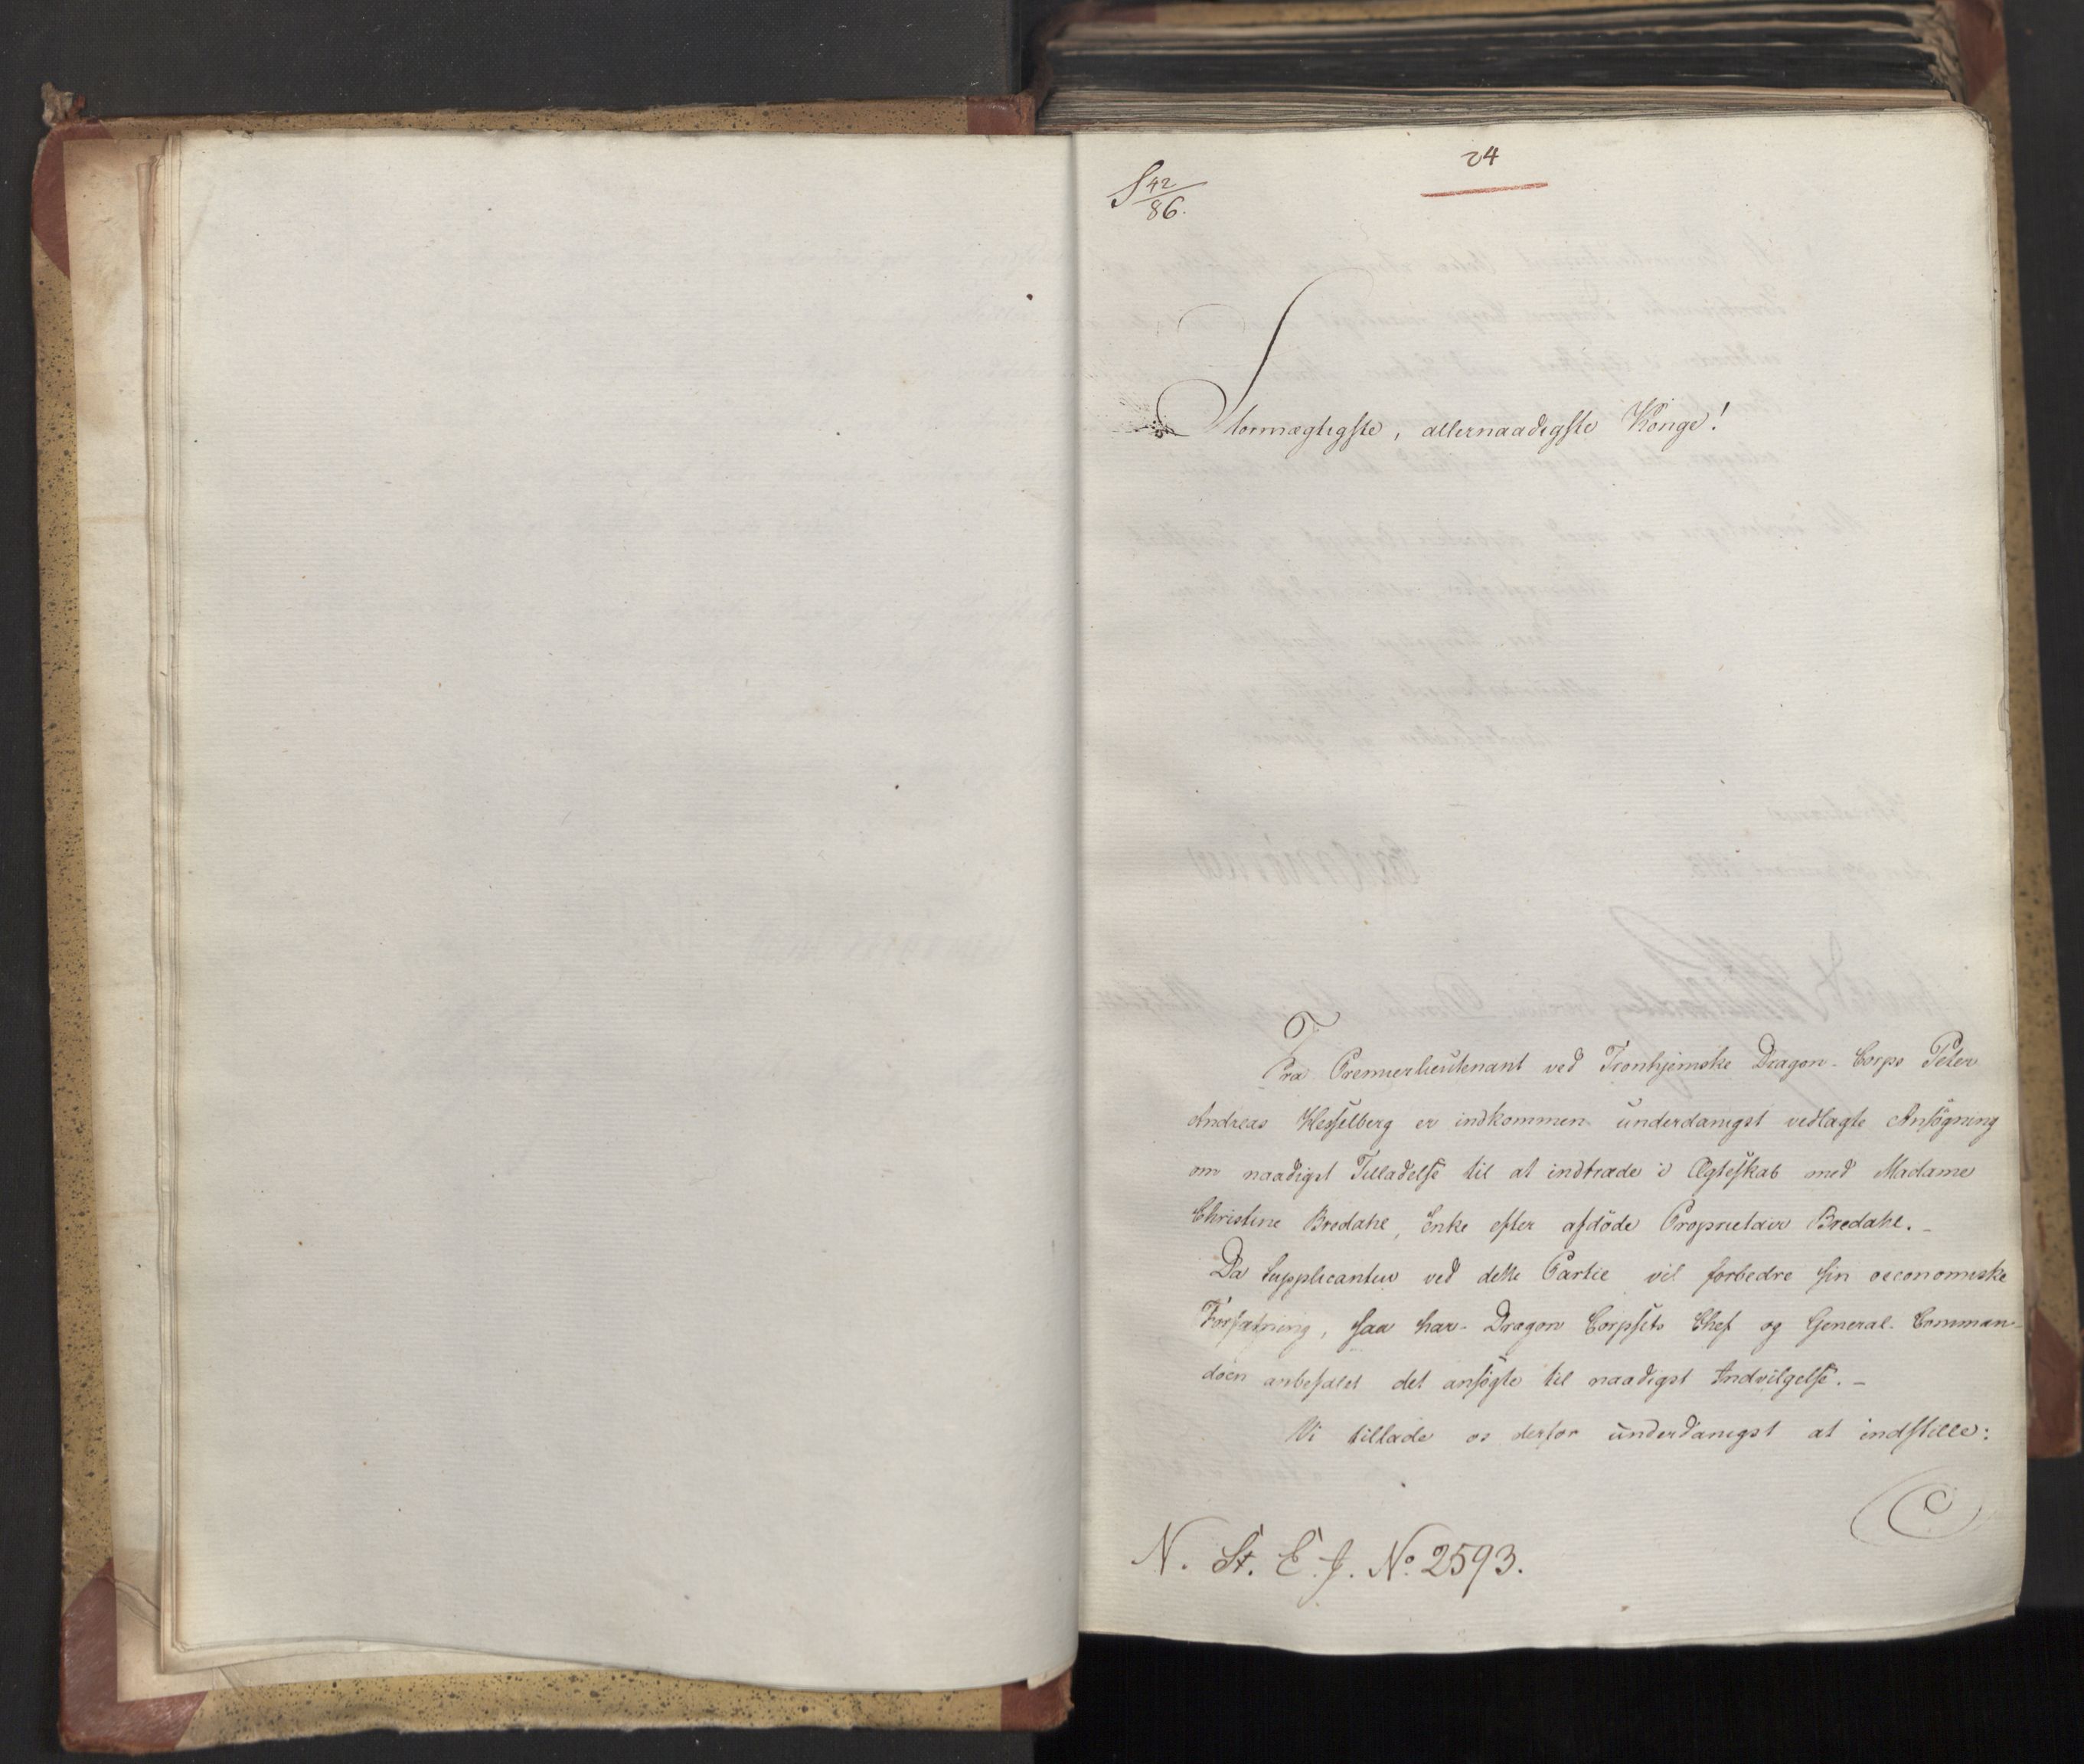 24
S 42/86.
Stormægtigste, allernaadigste Konge!
Fra Premierlieutenant ved Tronhjemske Dragon-Corps Peter
Andreas Hesselberg er indkommen underdanigst vedlagte Ansögning
om naadigst Tilladelse til at indtræde i Ægteskab med Madame
Christine Bredahl, Enke efter afdöde Proprietair Bredahl. -
Da Supplicanten ved dette Partie vil forbedre sin oeconomiske
Forfatning, saa har Dragon Corpsets Chef og General-Comman-
doen anbefalet det ansögte til naadigst Indvilgelse. -
Vi tillade os derfor underdanigst at indstille:
N. St. E. J. No. 2593.